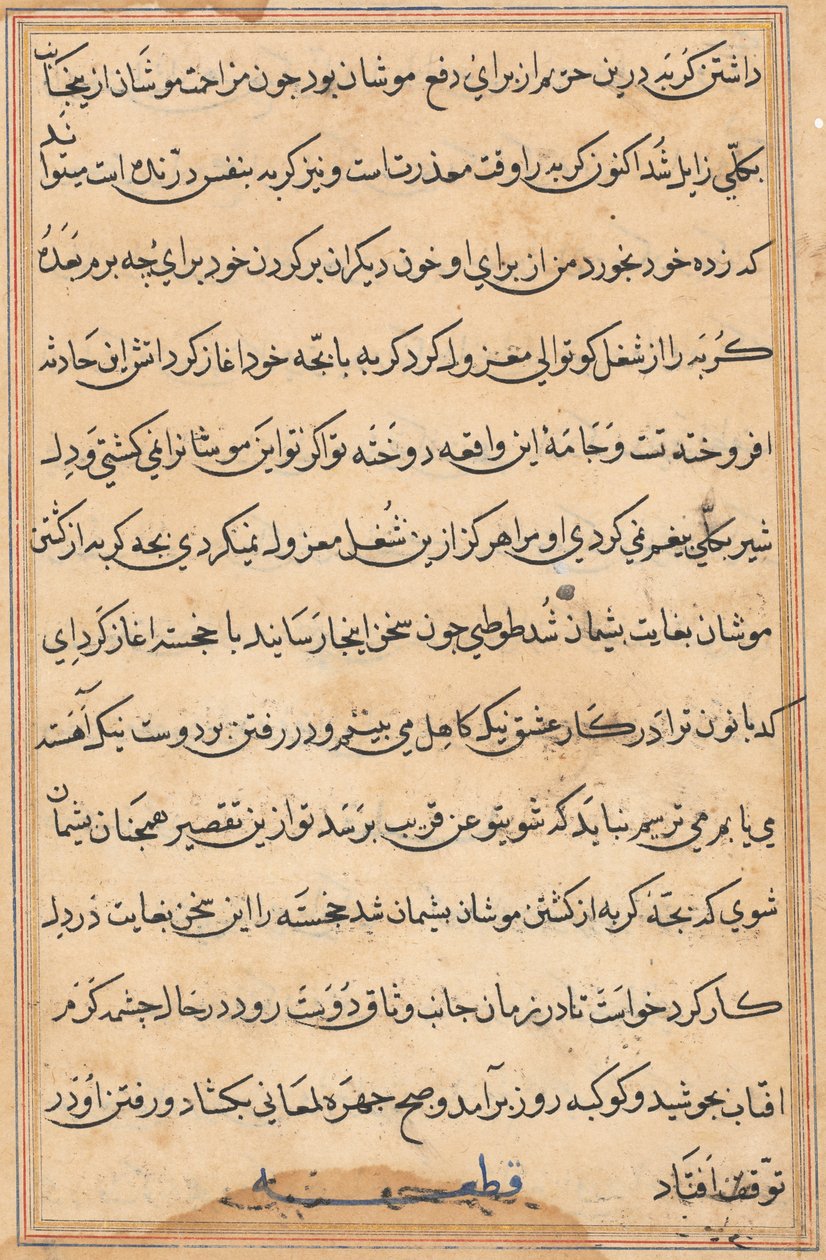 داشتن کربه درین حریم از برای دفع موشان بود جون مزاحمت موشان ازینجانب
بکلّی زایل شد اکنون کربه را وقت معذرتست و نیز کربه بنفس درّنده است میتواند
که زده خود بخورد من از برای او خون دیکران بر کردن خود برای چه برم بعده
کربه را از شغل کوتوالی معزول کرد کربه با بجّه خود اغاز کرد اتش این حادثه
افروخته تست و جامهٔ این واقعه دوخته تو اکر تو این موشانرا نمی کشتی و دل
شیر بکلّی بیغم نمی کردی او مرا هرکز ازین شغل معزول نمیکردی بجه کربه از کشتن
موشان بغایت بشیمان شد طوطی جون سخن اینجا رسانید با خجسته اغاز کرد ای
کدبانو من ترا در کار عشق نیک کاهل می بینم و در رفتن بر دوست نیک آهسته
می یابم می ترسم نباید که شوی تو عن قریب برسد تو ازین تقصیر همجنان بشیمان
شوی که بجّهٔ کربه از کشتن موشان بشیمان شد خجسته را این سخن بغایت در دل
کار کرد خواست تا در زمان جانب وثاق دوست رود در حال چشمه کرم
افتاب بجوشید و کوکبه روز برآمد و صبح جهره لمعانی بکشاد و رفتن او در
توقف افتاد قطعه